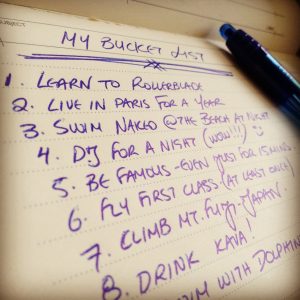 MY BUCKET LIST
1. LEARN TO ROLLERBLADE
2. LIVE IN PARIS FOR A YEAR
3. SWIM NAKED @ THE BEACH AT NIGHT
4. DJ FOR A NIGHT (WOW!!!) ☺
5. BE FAMOUS - EVEN JUST FOR 15 MINS.
6. FLY FIRST CLASS (AT LEAST ONCE)
7. CLIMB MT. FUJI - JAPAN.
8. DRINK KAVA!
SWIM WITH DOLPHINS